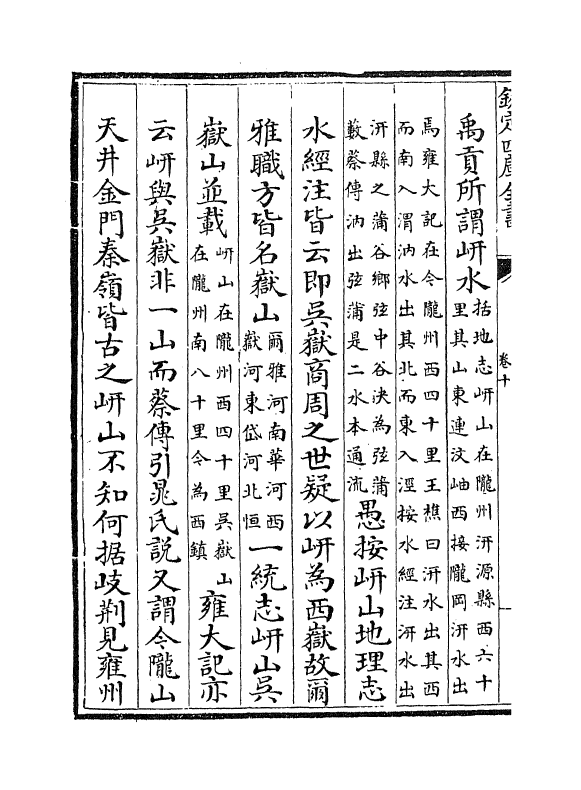 欽定四庫全書
卷十
禹貢所謂岍水
括地志岍山在隴州汧源縣西六十
里其山東連汶岫西接隴岡汧水出
焉雍大記在今隴州西四十里王樵曰汧水出其西
而南入渭汭水出其北而東入涇按水經注汧水出
汧縣之蒲谷鄉弦中谷決為弦蒲
藪蔡傳汭出弦蒲是二水本通流
愚按岍山地理志
水經注皆云即吳嶽商周之世疑以岍為西嶽故爾
雅職方皆名嶽山
爾雅河南華河西
嶽河東岱河北恒
一統志岍山吳
嶽山並載
岍山在隴州西四十里吳嶽山
在隴州南八十里今為西鎮
雍大記亦
云岍與吳嶽非一山而蔡傳引晁氏說又謂今隴山
天井金門秦嶺皆古之岍山不知何据歧荆見雍州